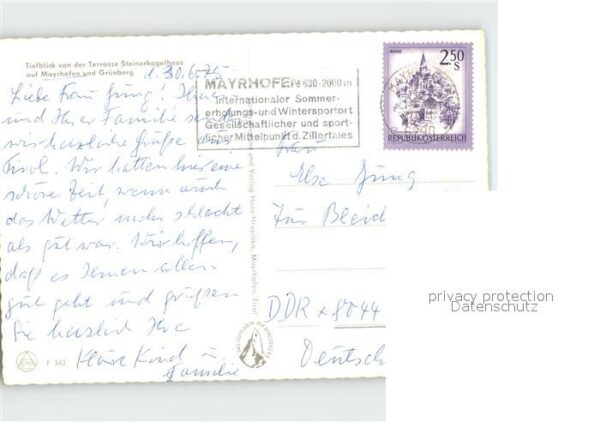 Tiefblick von der Terrasse Steinerkogelhaus
auf Mayrhofen und Grünberg
d. 30.6.75
Liebe Frau Jung! Ihnen
und Ihrer Familie senden
wir herzliche Grüße aus
Tirol. Wir hatten hier eine
schöne Zeit, wenn auch
das Wetter mehr schlecht
als gut war. Wir hoffen,
daß es Ihnen allen
gut geht und grüßen
Sie herzlich Ihre
Kläre Kind u.
Familie
F 343
MAYRHOFEN 630-2000 m
Internationaler Sommer-
erholungs- und Wintersportort
Gesellschaftlicher und sport-
licher Mittelpunkt d. Zillertales
2.50
S
REPUBLIK ÖSTERREICH
Frau
Else Jung
DDR 8044
Deutsch
privacy protection
Datenschutz